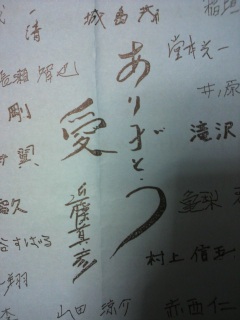 城島茂
稲垣
堂本光一
長瀬智也
井ノ原
ありがとう
愛
近藤真彦
剛
滝沢
翼
谷すばる
村上信五
翔
山田涼介
赤西仁